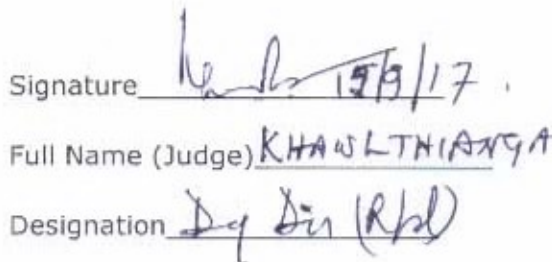 Signature 15/9/17.
Full Name (Judge) KHAWLTHIANGA
Designation Dy Dir (Rtd)